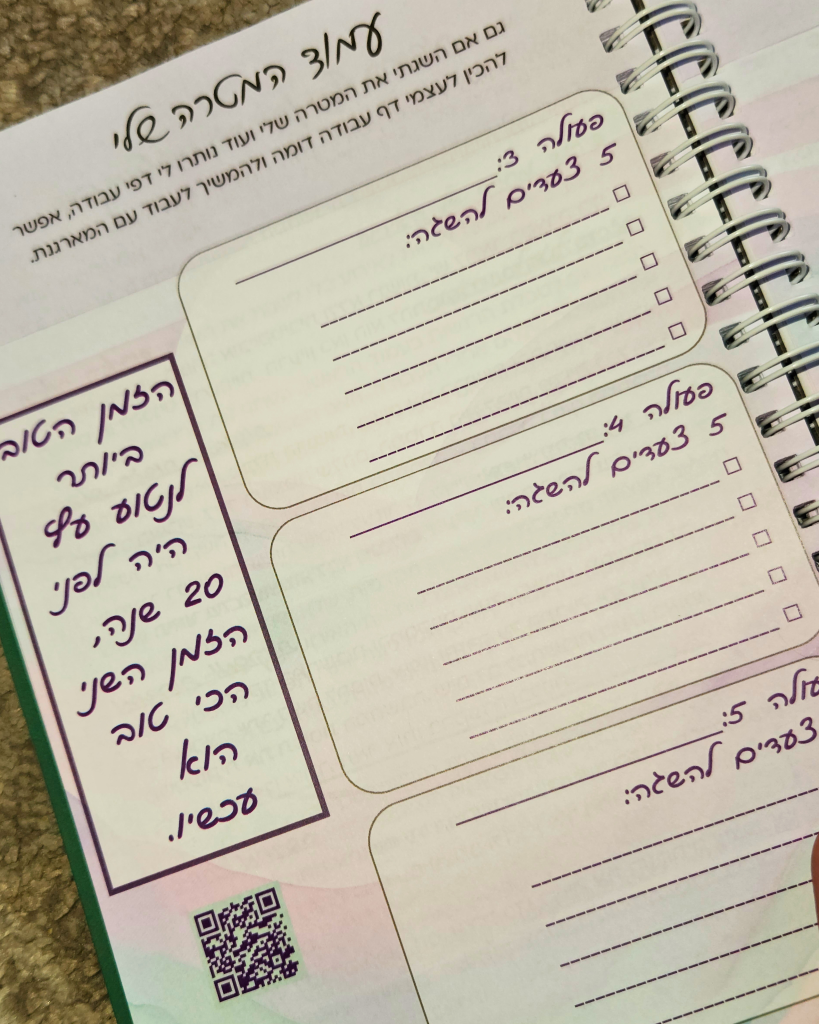 עמוד המטרה שלי
גם אם השגתי את המטרה שלי ועוד נותרו לי דפי עבודה, אפשר
להכין לעצמי דף עבודה דומה ולהמשיך לעבוד עם המארגנת.
פעולה 3:
5 צעדים להשגה:
פעולה 4:
5 צעדים להשגה:
פעולה 5:
צעדים להשגה:
הזמן הטוב
ביותר
לנטוע עץ
היה לפני
20 שנה,
הזמן השני
הכי טוב
הוא
עכשיו.